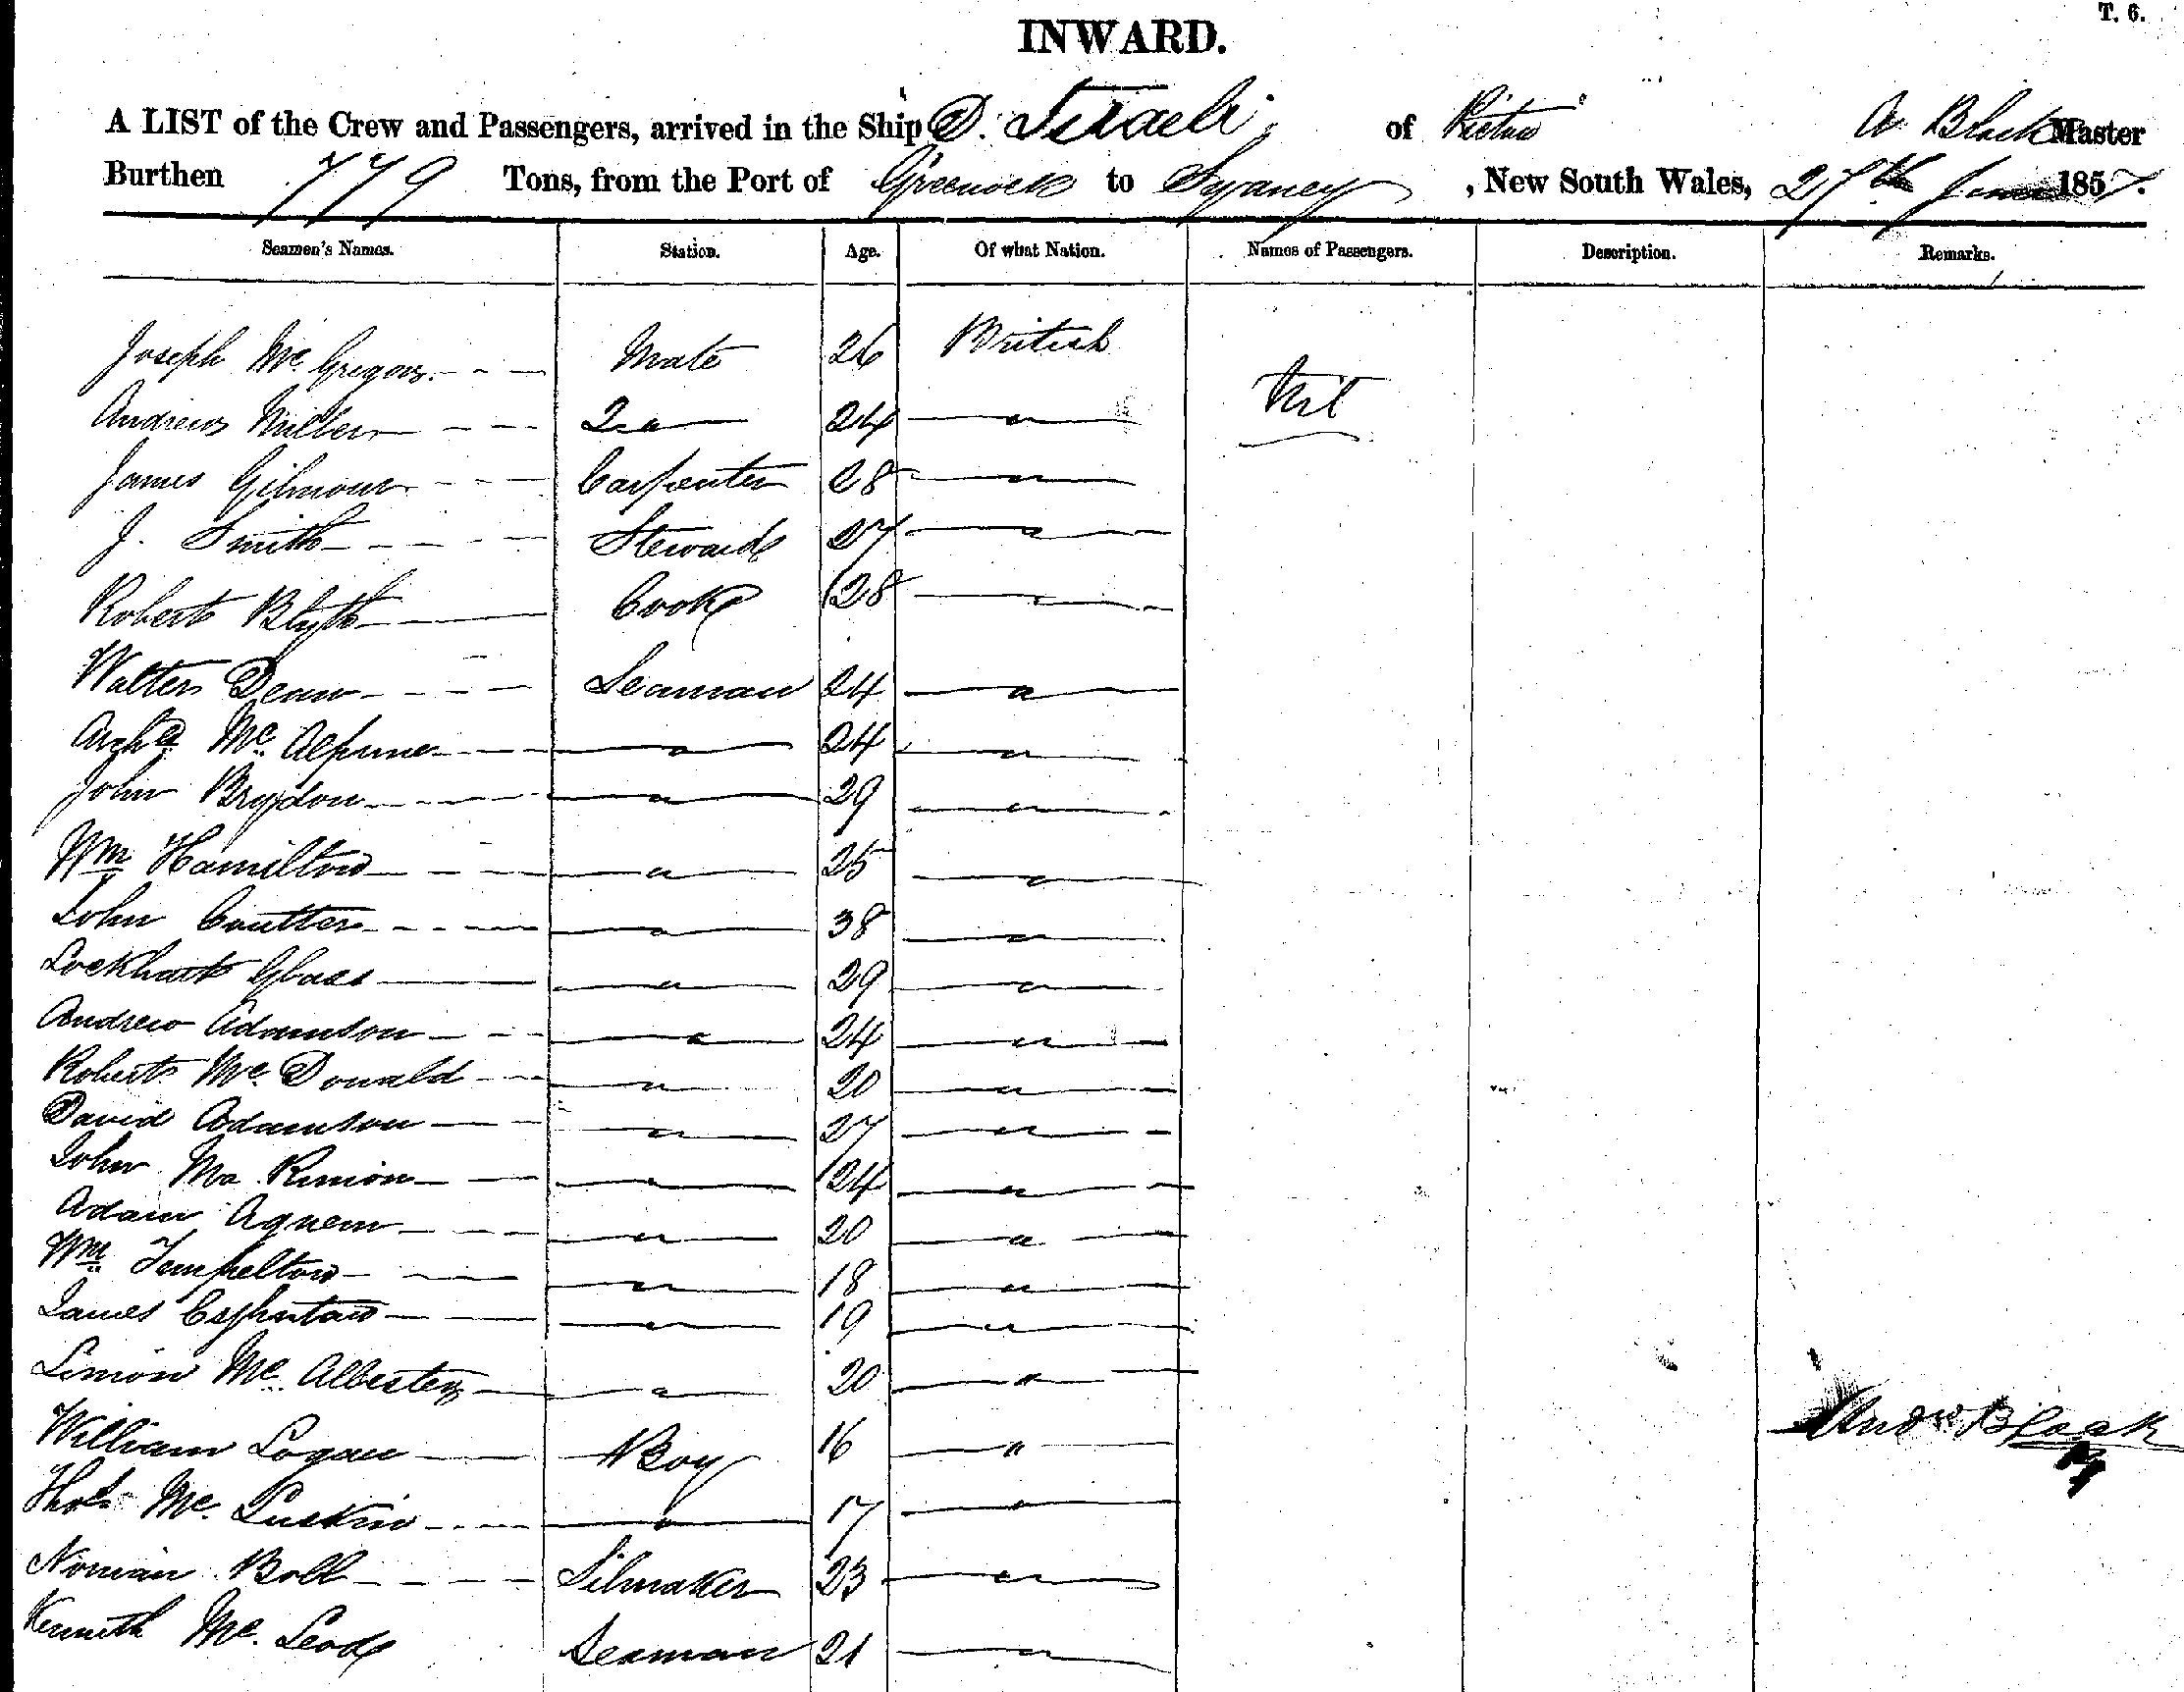 T. 6.
INWARD.
A LIST of the Crew and Passengers, arrived in the Ship D. Israeli of Pictou A. Black Master
Burthen 779 Tons, from the Port of Greenock to Sydney, New South Wales, 27th June 1857.
Seamen's Names. Station. Age. Of what Nation. Names of Passengers. Description. Remarks.
Joseph Mc. Gregor. Mate 26 British
Nil
Andrew Miller 2 " 24 "
James Gilmour Carpenter 28 "
J. Smith Steward 27 "
Robert Blyth Cook 28 "
Walter Dean Seaman 24 "
Archd Mc. Alpine " 24 "
John Brydon " 29 "
Wm Hamilton " 25 "
John Coulter " 38 "
Lockhart Glass " 29 "
Andrew Adamson " 24 "
Robert Mc. Donald " 20 "
David Adamson " 27 "
John Ma " 24 "
Adam Agnew " 20 "
Wm Tempelton " 18 "
James " 19 "
Simon Mc. Albester " 20 "
William Logan Boy 16 "
Andw Black
Thos Mc. Luskin " 17 "
Norman Bell Silmaker 23 "
Kenneth Mc. Leod Seaman 21 "